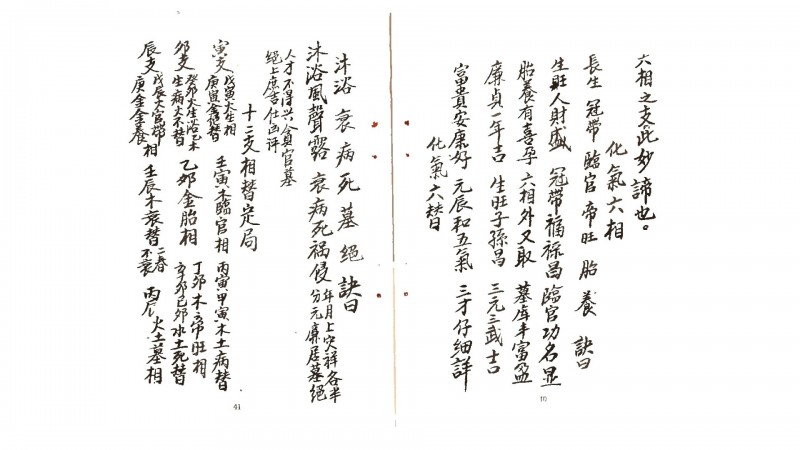 六相之支。此妙諦也。
化氣六相
長生 冠帶 臨官 帝旺 胎 養 訣曰
生旺人財盛 冠帶福祿昌 臨官功名显
胎養有喜孕 六相外又取 墓库丰富盈
廉貞一年吉 生旺子孫昌 三元三武士口
富貴安康好 元辰和五氣 三才仔細詳
化氣六替
10
沐浴 衰 病 死 墓 絕 訣曰
沐浴風聲露 衰病死祸侵 年月上穴祥各半
分元廉居墓絕
人才不得兴 貪官墓
絕上庶吉仕凶评
十二支相替定局
寅支 戊寅火生相 庚寅金絕替 壬寅木臨官相 丙寅甲寅木土病替
卯支 癸卯火生浴己未 生病大不替 乙卯金胎相 丁卯木帝旺相 辛卯已卯水土死替
辰支 戊辰火官帶 庚金金養相 壬辰木衰替 二春不衰 丙辰火土墓相
41